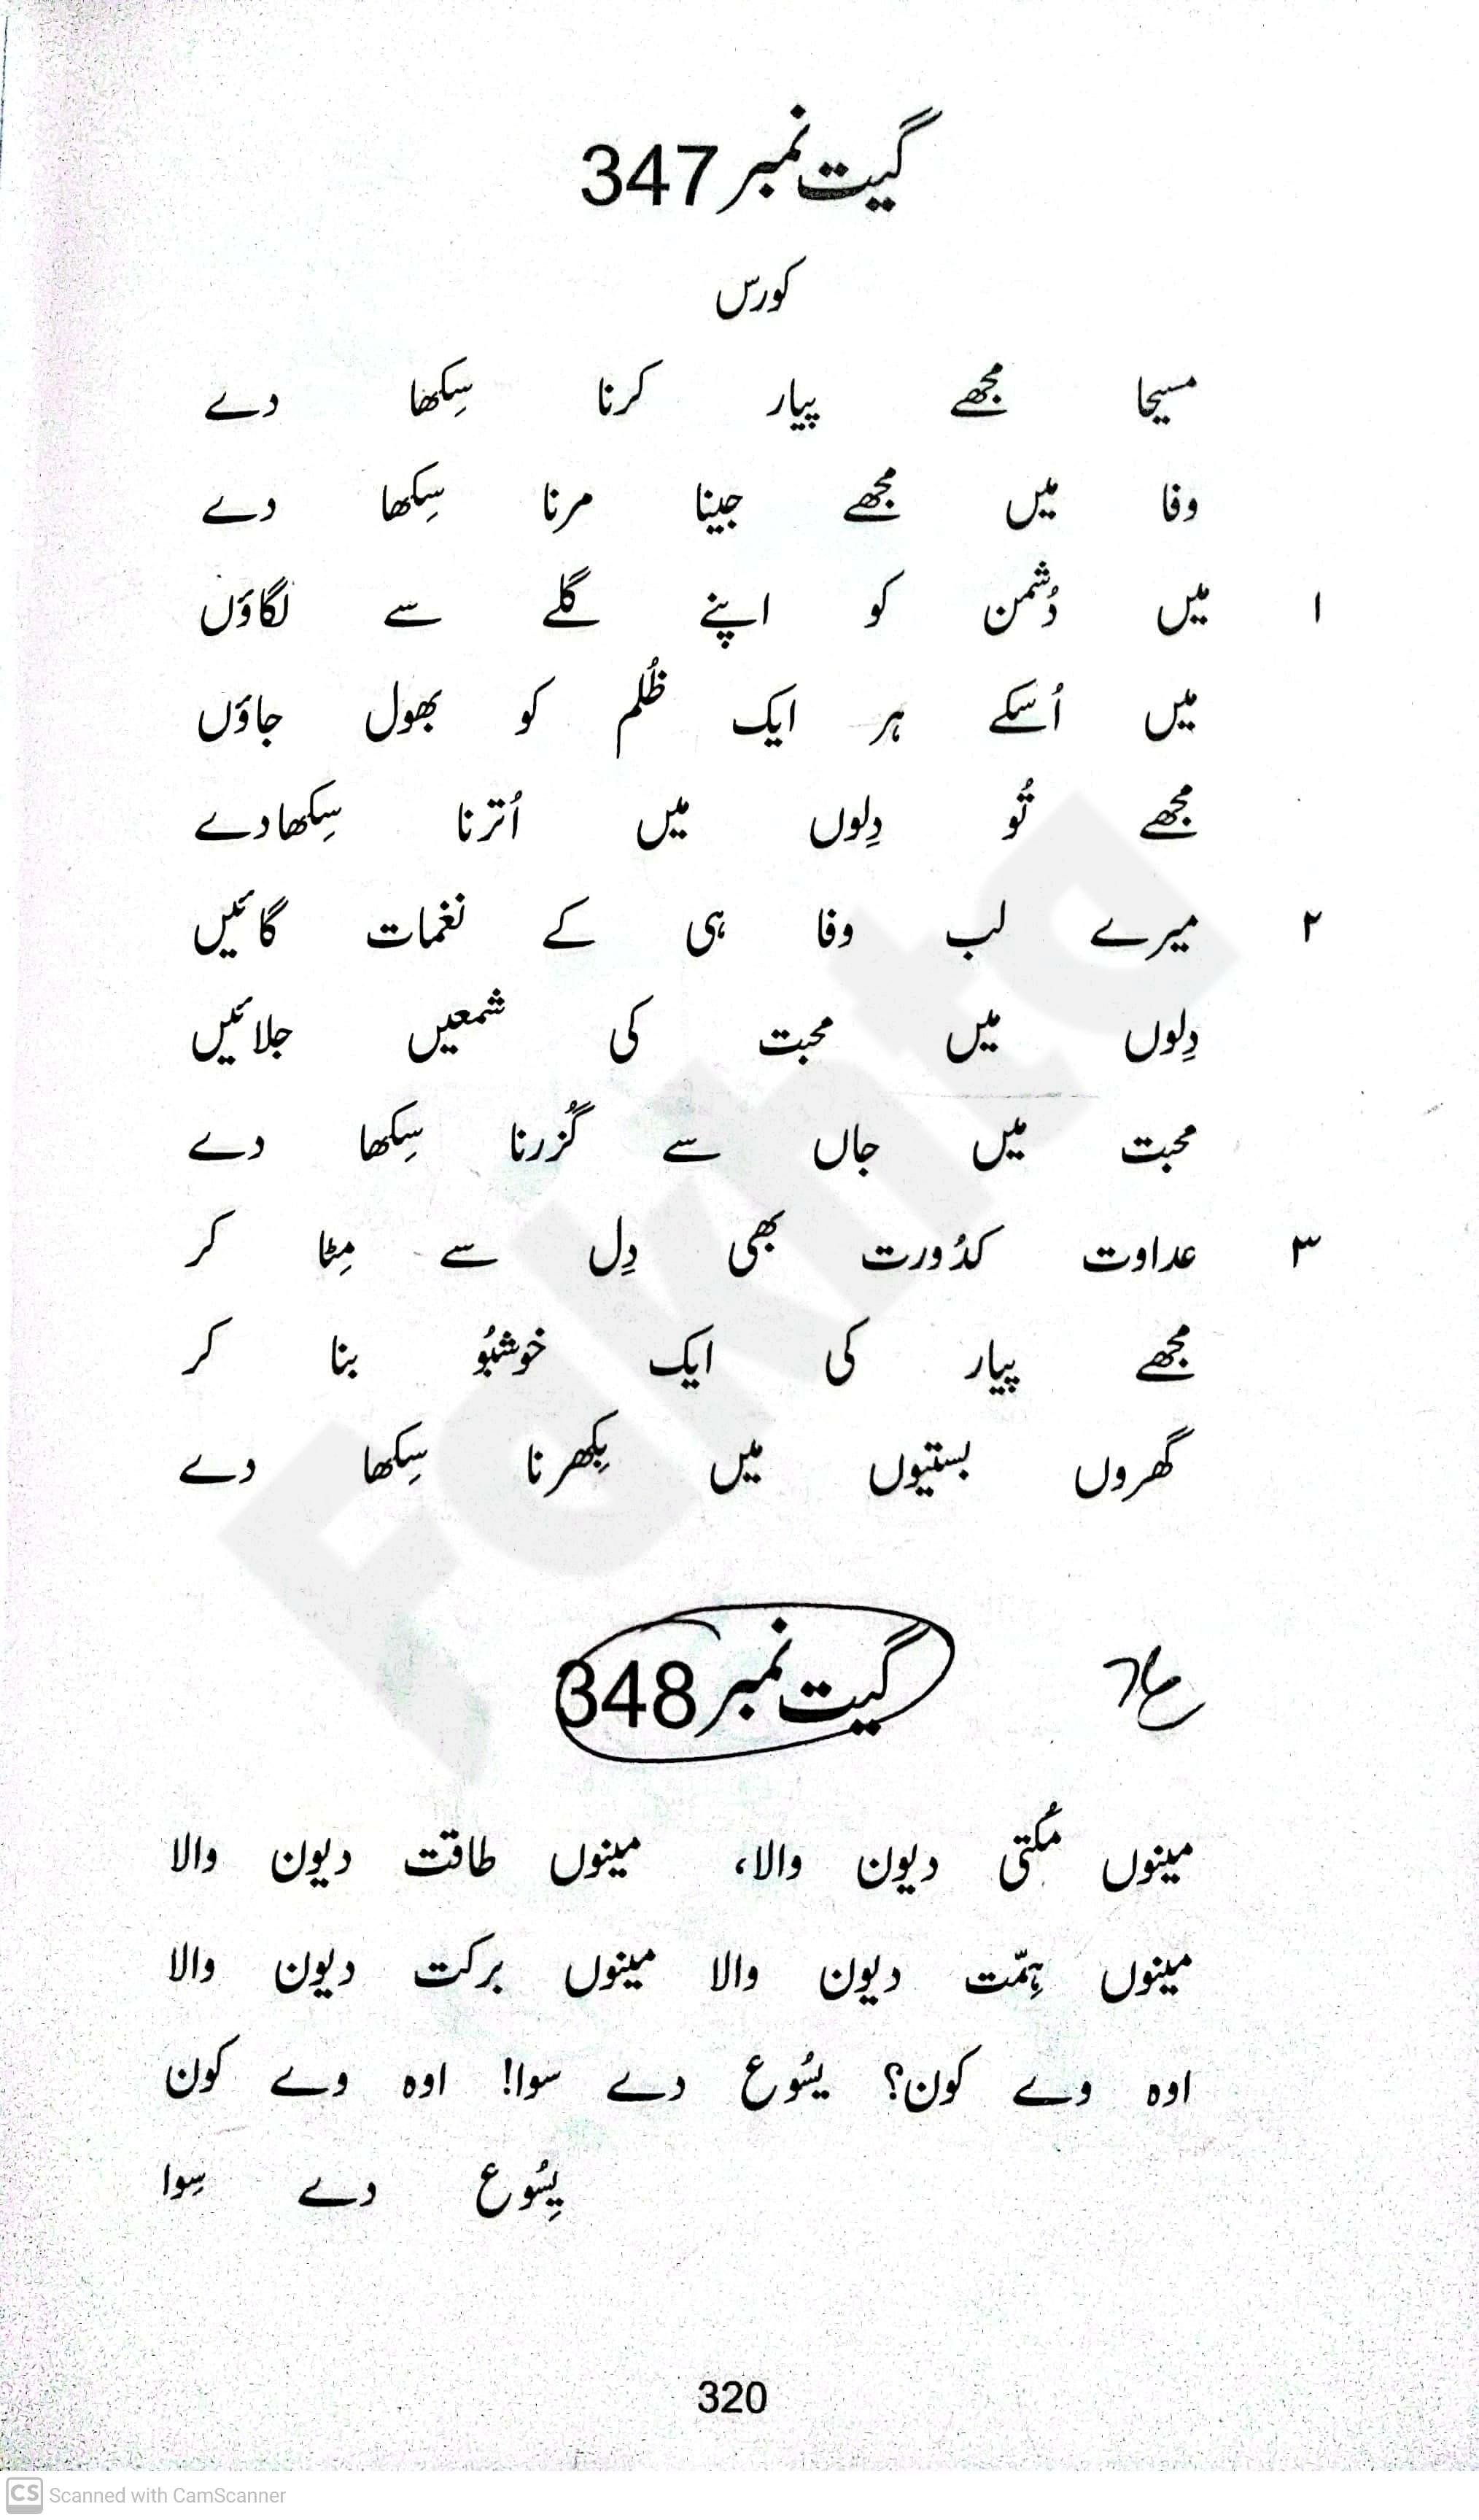 گیت نمبر 347
کورس
مسیحا مجھے پیار کرنا سِکھا دے
وفا میں مجھے جینا مرنا سِکھا دے
۱ میں دُشمن کو اپنے گلے سے لگاؤں
میں اُسکے ہر ایک ظُلم کو بھول جاؤں
مجھے تُو دِلوں میں اُترنا سِکھادے
۲ میرے لب وفا ہی کے نغمات گائیں
دِلوں میں محبت کی شمعیں جلائیں
محبت میں جاں سے گُزرنا سِکھا دے
۳ عداوت کدُورت بھی دِل سے مِٹا کر
مجھے پیار کی ایک خوشبُو بنا کر
گھروں بستیوں میں بِکھرنا سِکھا دے
گیت نمبر 348
مینوں مُکتی دیون والا، مینوں طاقت دیون والا
مینوں ہِمّت دیون والا مینوں برکت دیون والا
اوہ وے کون؟ یسُوع دے سوا! اوہ وے کون
یِسُوع دے سِوا
320
Fakhta
CS Scanned with CamScanner